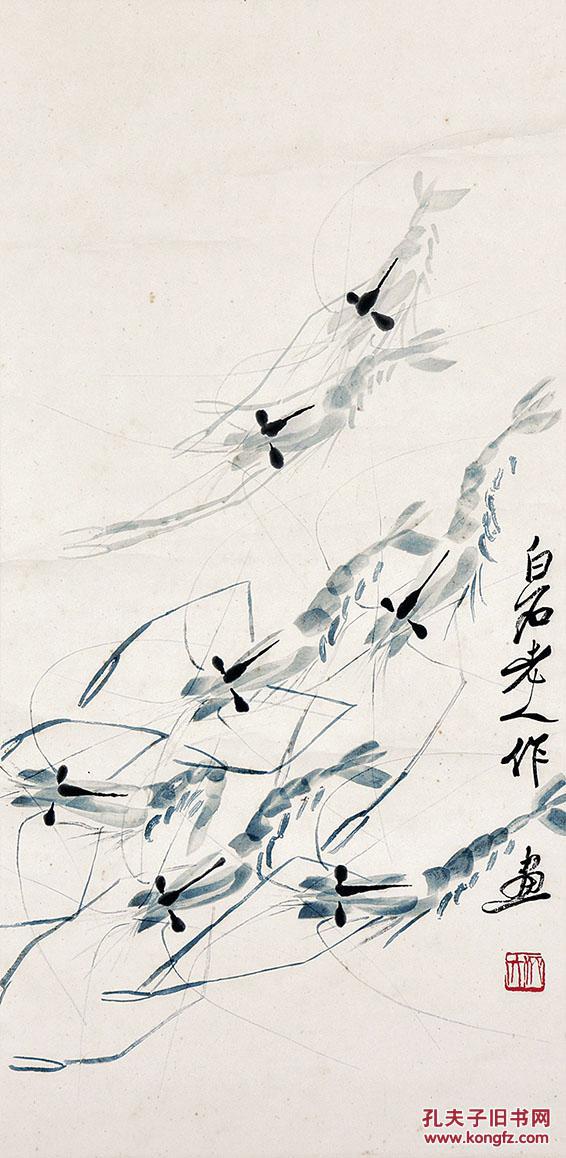 白石老人作
画
孔夫子旧书网
www.kongfz.com